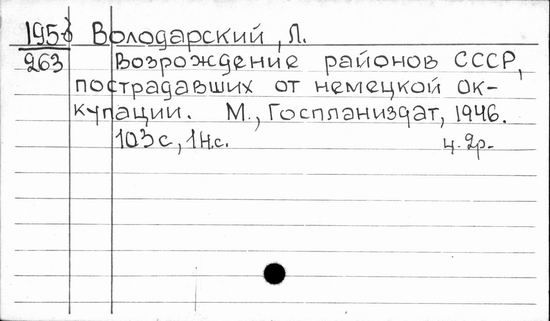 1958 Володарский, Л.
263 Возрождение районов СССР,
пострадавших от немецкой ок-
купации. М., Госпланиздат, 1946.
103с, 1н.с. ц. 2р.